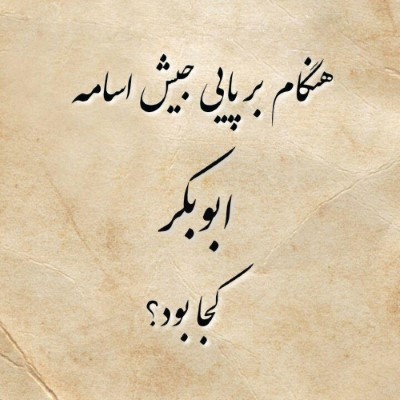 هنگام برپایی جیش اسامه
ابوبکر
کجا بود؟